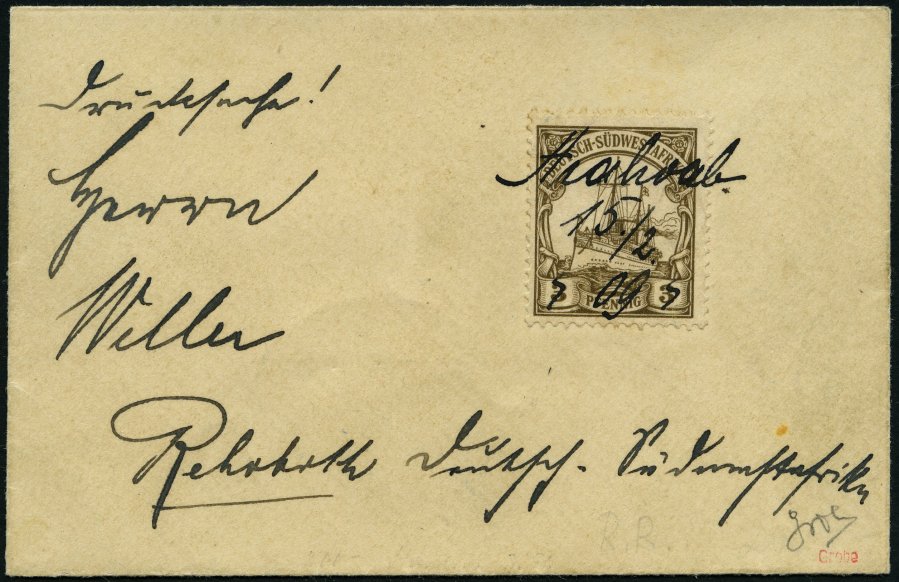 Drucksache!
Herrn
Willer
Rehoboth Deutsch-Südwestafrika
DEUTSCH-SÜDWESTAFRIKA
Kuhoab
15./2.
09
3 PFENNIG 3
R.R.
Grobe